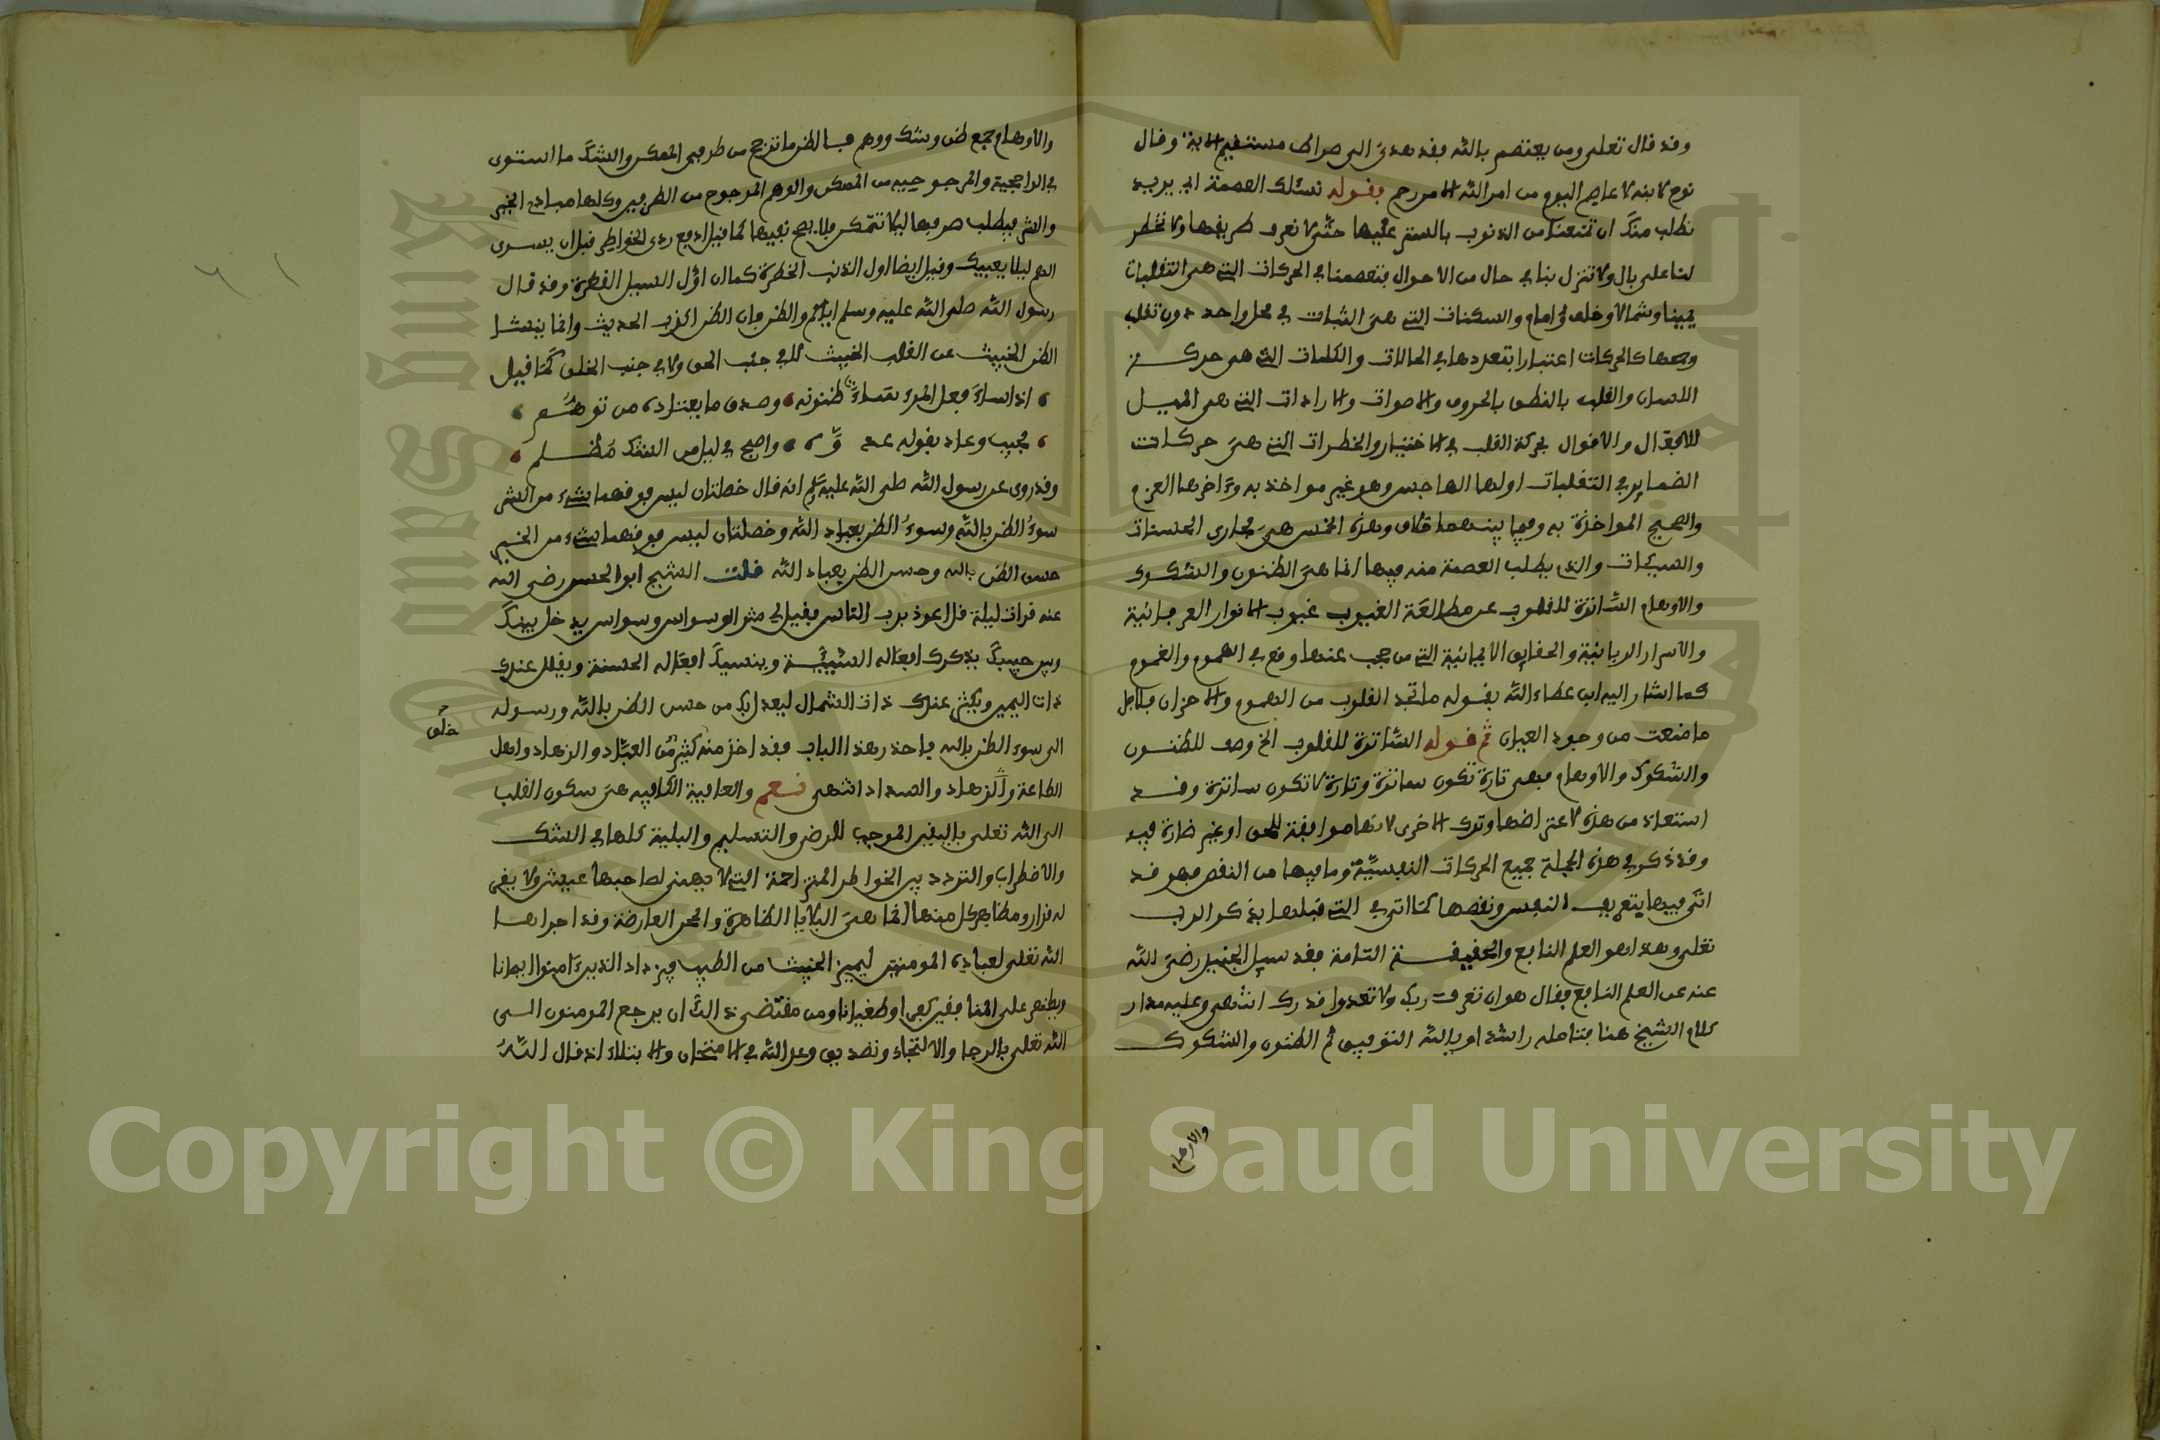 وقد قال تعلى ومن يعتصم بالله فقد هدى الى صراط مستقيم الاية وقال
نوح لابنه لا عاصم اليوم من امر الله الا من رحم فقوله نسئلك العصمة اي يريد
نطلب منك ان تمنعنا من الذنوب بالستر عليها حتى لا نعرف طريقها ولا تخطر
لنا على بال ولا تنزل بنا في حال من الاحوال فتعصمنا في الحركات التي هي التقلبات
يمينا وشمالا وخلف وامام والسكنات التي هي الثبات في محل واحد دون تقلب
وجمعها كالحركات اعتبارا بتعددها في الحالات والكلمات التي هي حركة
اللسان والقلب بالنطق بالحروف والاصوات والارادات التي هي الميل
للافعال والاقوال بحركة القلب في الاختيار والخطرات التي هي حركات
الضماير في التقلبات اولها الهاجس وهو غير مواخذ به وءاخرها العزم
والصحيح المواخذة به وفيما بينهما خلاف وهذه الخمس هي مجاري الحسنات
والسيئات والذي يطلب العصمة منه فيها انما هي الظنون والشكوك
والاوهام الساترة للقلوب عن مطالعة الغيوب غيوب الانوار العرفانية
والاسرار الربانية والحقايق الايمانية التي من حجب عندها وقع في الهموم والغموم
كما اشار اليه ابن عطاء الله بقوله ما تجد القلوب من الهموم والاحزان فلاجل
ما منعت من وجود العيان ثم قوله الساترة للقلوب الخ وصف للظنون
والشكوك والاوهام فهي تارة تكون ساترة وتارة لا تكون ساترة وقد
استعاذ من هذه لاعتراضها وترك الاخرى لانها موافقة للحق او غير ضارة فيه
وقد ذكر في هذه الجملة جميع الحركات النفسية وما فيها من النقص فهو قد
اتى فيها بتعريف النفس ونقصها كما اتى في التي قبلها بذكر الرب
تعلى وهذا هو العلم النافع والحقيقة التامة فقد سيل الجنيد رضى الله
عنه عن العلم النافع فقال هو ان تعرف ربك ولا تعدوا قدرك انتهى وعليه مدار
كلام الشيخ هنا فتامله راشدا وبالله التوفيق ثم الظنون والشكوك
والاوهام
والاوهام جمع ظن وشك ووهم فالظن ما ترجح من طرفي الممكن والشك ما استوى
في الراجحية والمرجوحية من الممكن والوهم المرجوح من الطرفين وكلها مبادي الخير
والشر فيطلب صرفها ليلا تتمكن فلا يصح نفيها كما قيل ادفع ردى الخواطر قبل ان يسرى
الهم ليلا يعييك وقيل ايضا اول الذنب الخطرة كما ان اول السيل القطرة وقد قال
رسول الله صلى الله عليه وسلم اياكم والظن فان الظن اكذب الحديث وانما ينشا
الظن الخبيث عن القلب الخبيث لا في جنب الحق ولا في جنب الخلق كما قيل
اذا ساء فعل المرء ساءت ظنونه وصدق ما يعتاده من توهم
محبيه وعاد بقوله عد وّه واصبح في ليل من الشك مظلم
وقد روى عن رسول الله صلى الله عليه وسلم انه قال خصلتان ليس فوقهما شيء من الشر
سوء الظن بالله وسوء الظن بعباد الله وخصلتان ليس فوقهما شيء من الخير
حسن الظن بالله وحسن الظن بعباد الله قلت الشيخ ابو الحسن رضى الله
عنه قرات ليلة قل اعوذ برب الناس فقيل لي شر الوسواس وسواس يدخل بينك
وبين حبيبك يذكرك افعاله السيئة وينسيك افعاله الحسنة ويقلل عندك
ذات اليمين ويكثر عندك ذات الشمال ليعدل بك من حسن الظن بالله ورسوله
الى سوء الظن بالله فاحذر هذا الباب فقد اخذ منه كثير من العباد والزهاد واهل
خلق
الطاعة والزهاد والسداد انتهى نعم والعافية الكافية هي سكون القلب
الى الله تعلى باليقين الموجب للرضى والتسليم والبلية كلها في الشك
والاضطراب والتردد بين الخواطر المتزاحمة التي لا يهنى لصاحبها عيش ولا يبقى
له قرار ومظاهر كل منها انما هي البلايا الظاهرة والمحن العارضة وقد اجراها
الله تعلى لعباده المومنين ليميز الخبيث من الطيب فيزداد الذين ءامنوا ايمانا
ويظهر على المنافقين كفرا وطغيانا ومن مقتضى ذالك ان يرجع المومنون الى
الله تعلى بالرجا والالتجاء وتصديق وعد الله في الامتحان والابتلاء اذ قال الله
Copyright © King Saud University
King Saud University